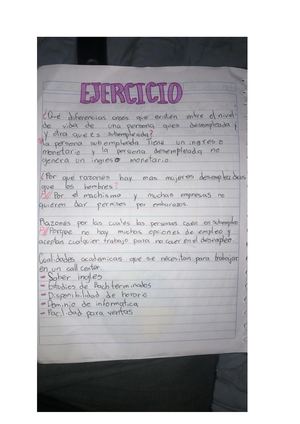 EJERCICIO
¿Qué diferencias crees que existen entre el nivel
de vida de una persona que es desempleada
y otra que es subempleada?
La persona subempleada tiene un ingreso
monetario y la persona desempleada no
genera un ingreso monetario.
¿Por qué razones hay mas mujeres desempleadas
que los hombres?
Por el machismo y muchas empresas no
quieren dar permisos por embarazos.
Razones por las cuales las personas caen en subempleo
Porque no hay muchas opciones de empleo y
aceptan cualquier trabajo para no caer en el desempleo
Cualidades academicas que se necesitan para trabajar
en un call center.
- Saber ingles
- Estudios de Bach terminados
- Disponibilidad de horario
- Dominio de informatica
- Facilidad para ventas